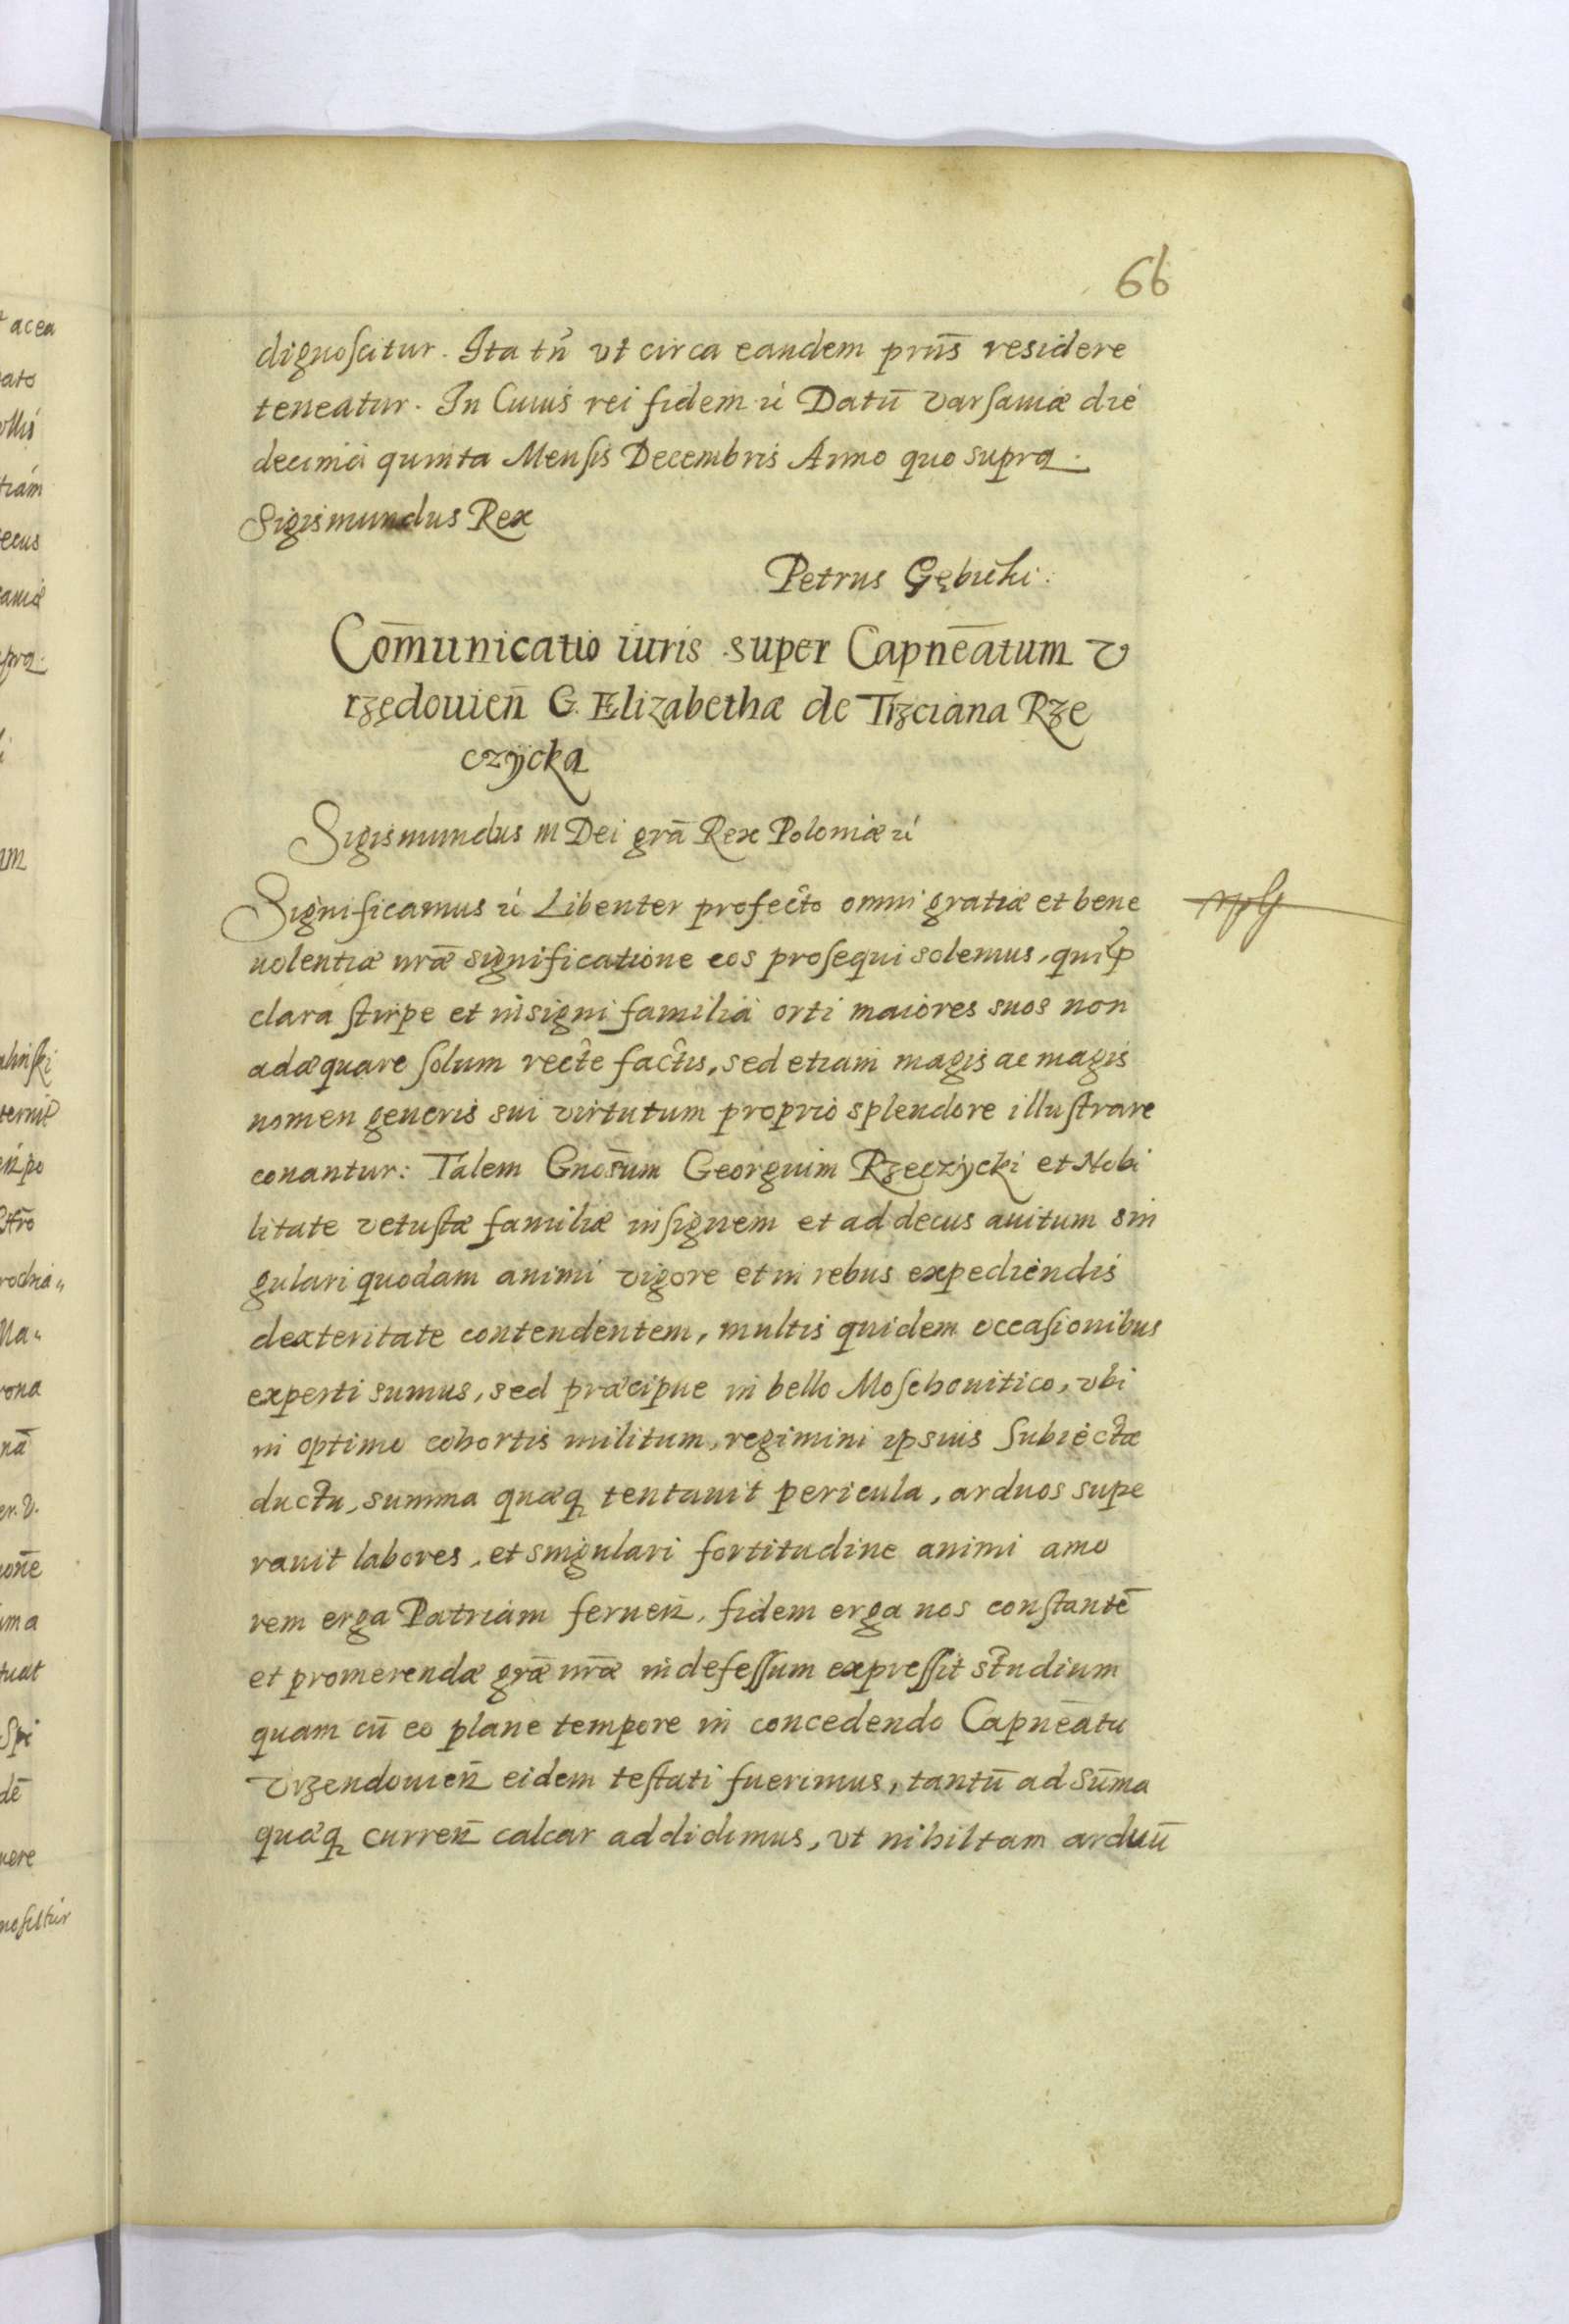 66
dignoscitur. Ita tn̄ vt circa eandem prn̄s residere
teneatur. In Cuius rei fidem &c Datū Varsauiæ die
decima quinta Mensis Decembris Anno quo supra.
Sigismundus Rex
Petrus Gębicki.
Com̄unicatio iuris super Capnēatum V
rzędouien̄ G. Elizabethæ de Trzciana Rze
czÿcka
Sigismundus III Dei grā Rex Poloniæ &c
Significamus &c Libenter profecto omni gratiæ et bene
uolentiæ nr̄æ significatione eos prosequi solemus, qui
clara stirpe et insigni familia orti maiores suos non
adæquare solum recte factis, sed etiam magis ac magis
nomen generis sui virtutum proprio splendore illustrare
conantur: Talem Gnosum Georgium Rzeczÿcki et Nobi
litate vetustæ familiæ insignem et ad decus auitum sin
gulari quodam animi vigore et in rebus expediendis
dexteritate contendentem, multis quidem occasionibus
experti sumus, sed præcipue in bello Moschouitico, vbi
in optimo cohortis militum, regimini ipsius subiectæ
ductu, summa quæq tentauit pericula, arduos supe
rauit labores, et singulari fortitudine animi amo
rem erga Patriam feruen̄, fidem erga nos constantē
et promerendæ grāæ nr̄æ indefessum expressit studium
quam cū eo plane tempore in concedendo Capnēatu
Vrzendouien̄ eidem testati fuerimus, tantū ad sūma
quæq curren̄ calcar addidimus, vt nihil tam arduū